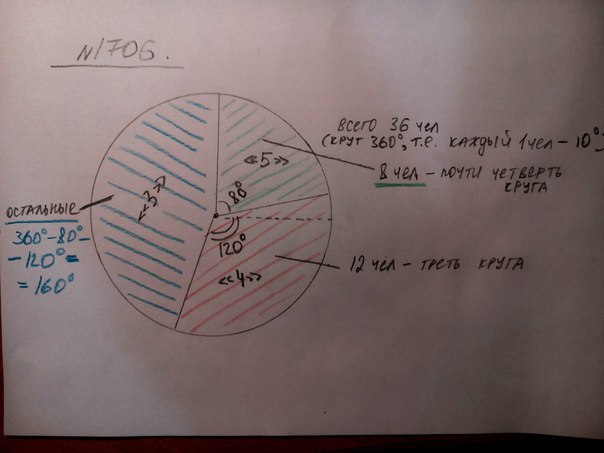 N1706.
ВСЕГО 36 ЧЕЛ
(КРУГ 360°, Т.Е. КАЖДЫЙ 1 ЧЕЛ – 10°)
8 ЧЕЛ – ПОЧТИ ЧЕТВЕРТЬ
КРУГА
«5»
«3»
80°
120°
«4»
ОСТАЛЬНЫЕ
360°-80°-
-120°=
=160°
12 ЧЕЛ – ТРЕТЬ КРУГА